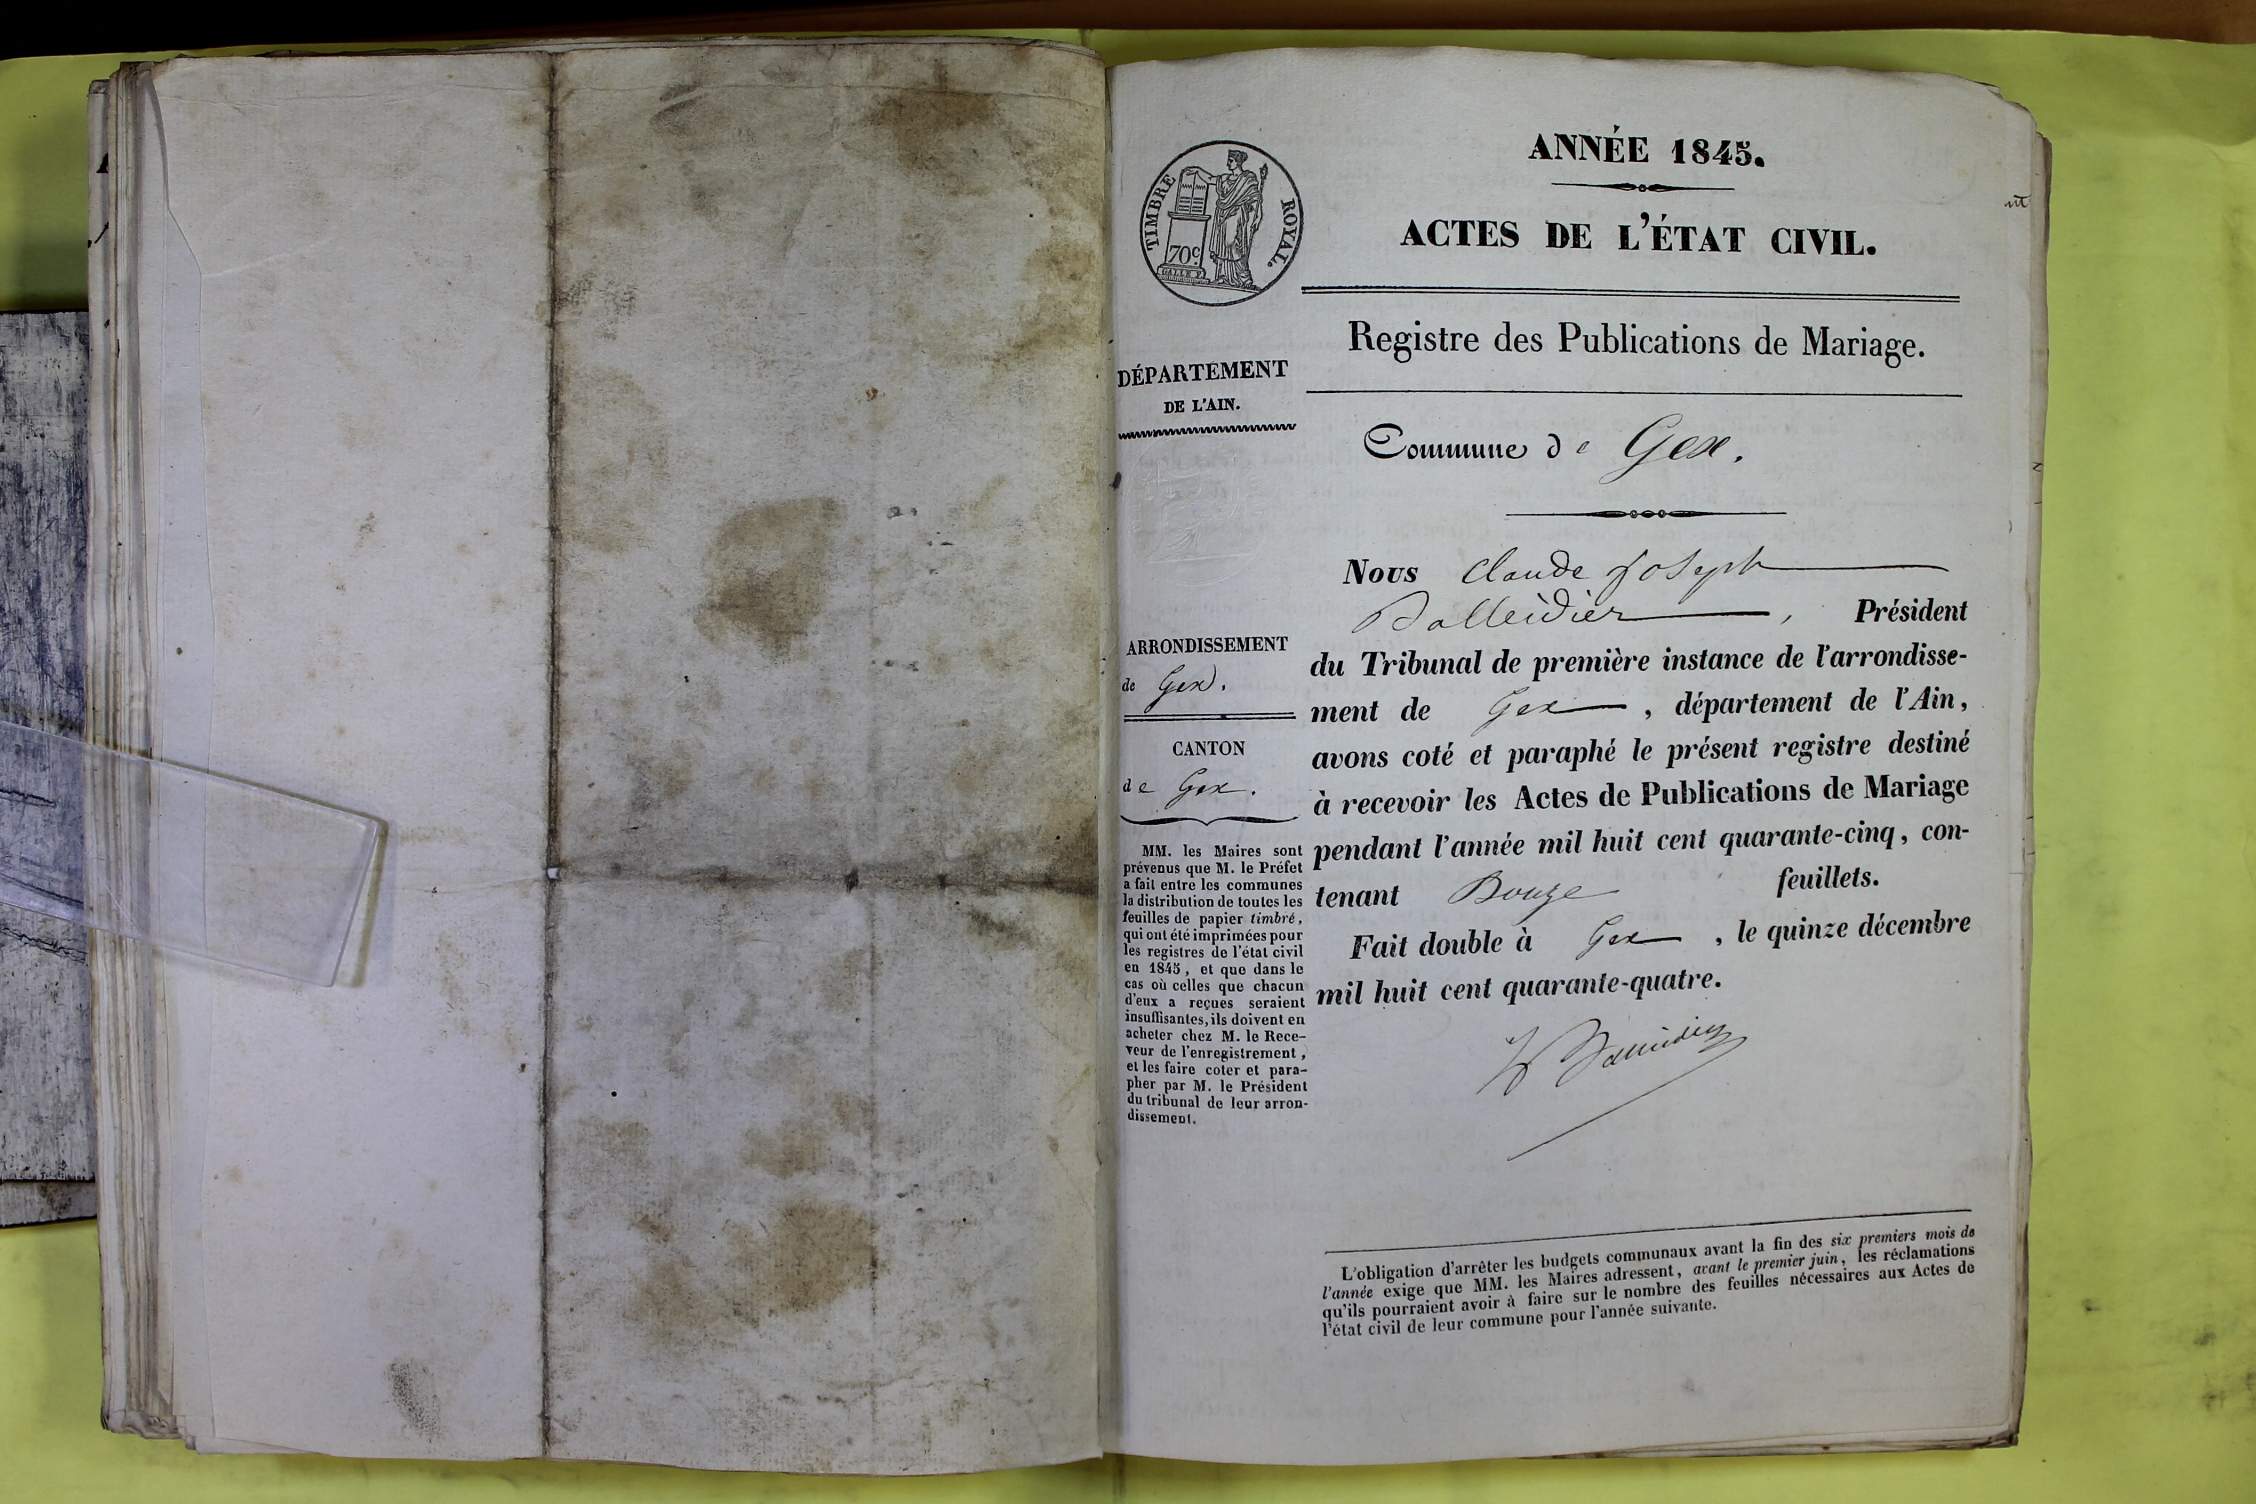 ANNÉE 1845.
ACTES DE L'ÉTAT CIVIL.
TIMBRE ROYAL.
70c.
Registre des Publications de Mariage.
DÉPARTEMENT
DE L'AIN.
Commune de Gex.
ARRONDISSEMENT
de Gex.
CANTON
de Gex.
MM. les Maires sont
prévenus que M. le Préfet
a fait entre les communes
la distribution de toutes les
feuilles de papier timbré,
qui ont été imprimées pour
les registres de l'état civil
en 1845, et que dans le
cas où celles que chacun
d'eux a reçues seraient
insuffisantes, ils doivent en
acheter chez M. le Rece-
veur de l'enregistrement,
et les faire coter et para-
pher par M. le Président
du tribunal de leur arron-
dissement.
Nous Claude Joseph
Balleidier, Président
du Tribunal de première instance de l'arrondisse-
ment de Gex, département de l'Ain,
avons coté et paraphé le présent registre destiné
à recevoir les Actes de Publications de Mariage
pendant l'année mil huit cent quarante-cinq, con-
tenant Douze feuillets.
Fait double à Gex, le quinze décembre
mil huit cent quarante-quatre.
L'obligation d'arrêter les budgets communaux avant la fin des six premiers mois de
l'année exige que MM. les Maires adressent, avant le premier juin, les réclamations
qu'ils pourraient avoir à faire sur le nombre des feuilles nécessaires aux Actes de
l'état civil de leur commune pour l'année suivante.